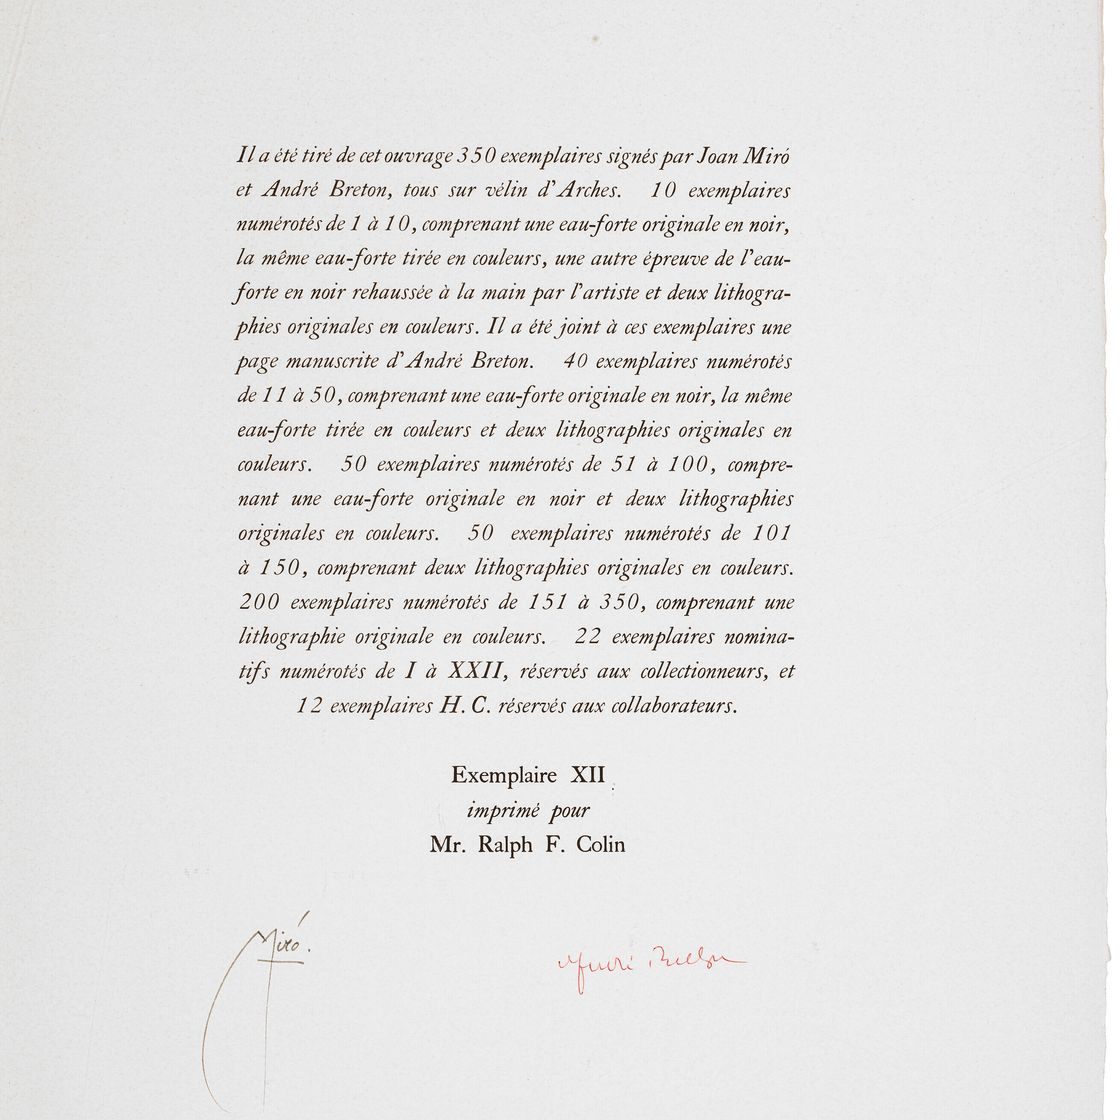 Il a été tiré de cet ouvrage 350 exemplaires signés par Joan Miró
et André Breton, tous sur vélin d'Arches. 10 exemplaires
numérotés de 1 à 10, comprenant une eau-forte originale en noir,
la même eau-forte tirée en couleurs, une autre épreuve de l'eau-
forte en noir rehaussée à la main par l'artiste et deux lithogra-
phies originales en couleurs. Il a été joint à ces exemplaires une
page manuscrite d'André Breton. 40 exemplaires numérotés
de 11 à 50, comprenant une eau-forte originale en noir, la même
eau-forte tirée en couleurs et deux lithographies originales en
couleurs. 50 exemplaires numérotés de 51 à 100, compre-
nant une eau-forte originale en noir et deux lithographies
originales en couleurs. 50 exemplaires numérotés de 101
à 150, comprenant deux lithographies originales en couleurs.
200 exemplaires numérotés de 151 à 350, comprenant une
lithographie originale en couleurs. 22 exemplaires nomina-
tifs numérotés de I à XXII, réservés aux collectionneurs, et
12 exemplaires H. C. réservés aux collaborateurs.
Exemplaire XII
imprimé pour
Mr. Ralph F. Colin
Miró.
André Breton